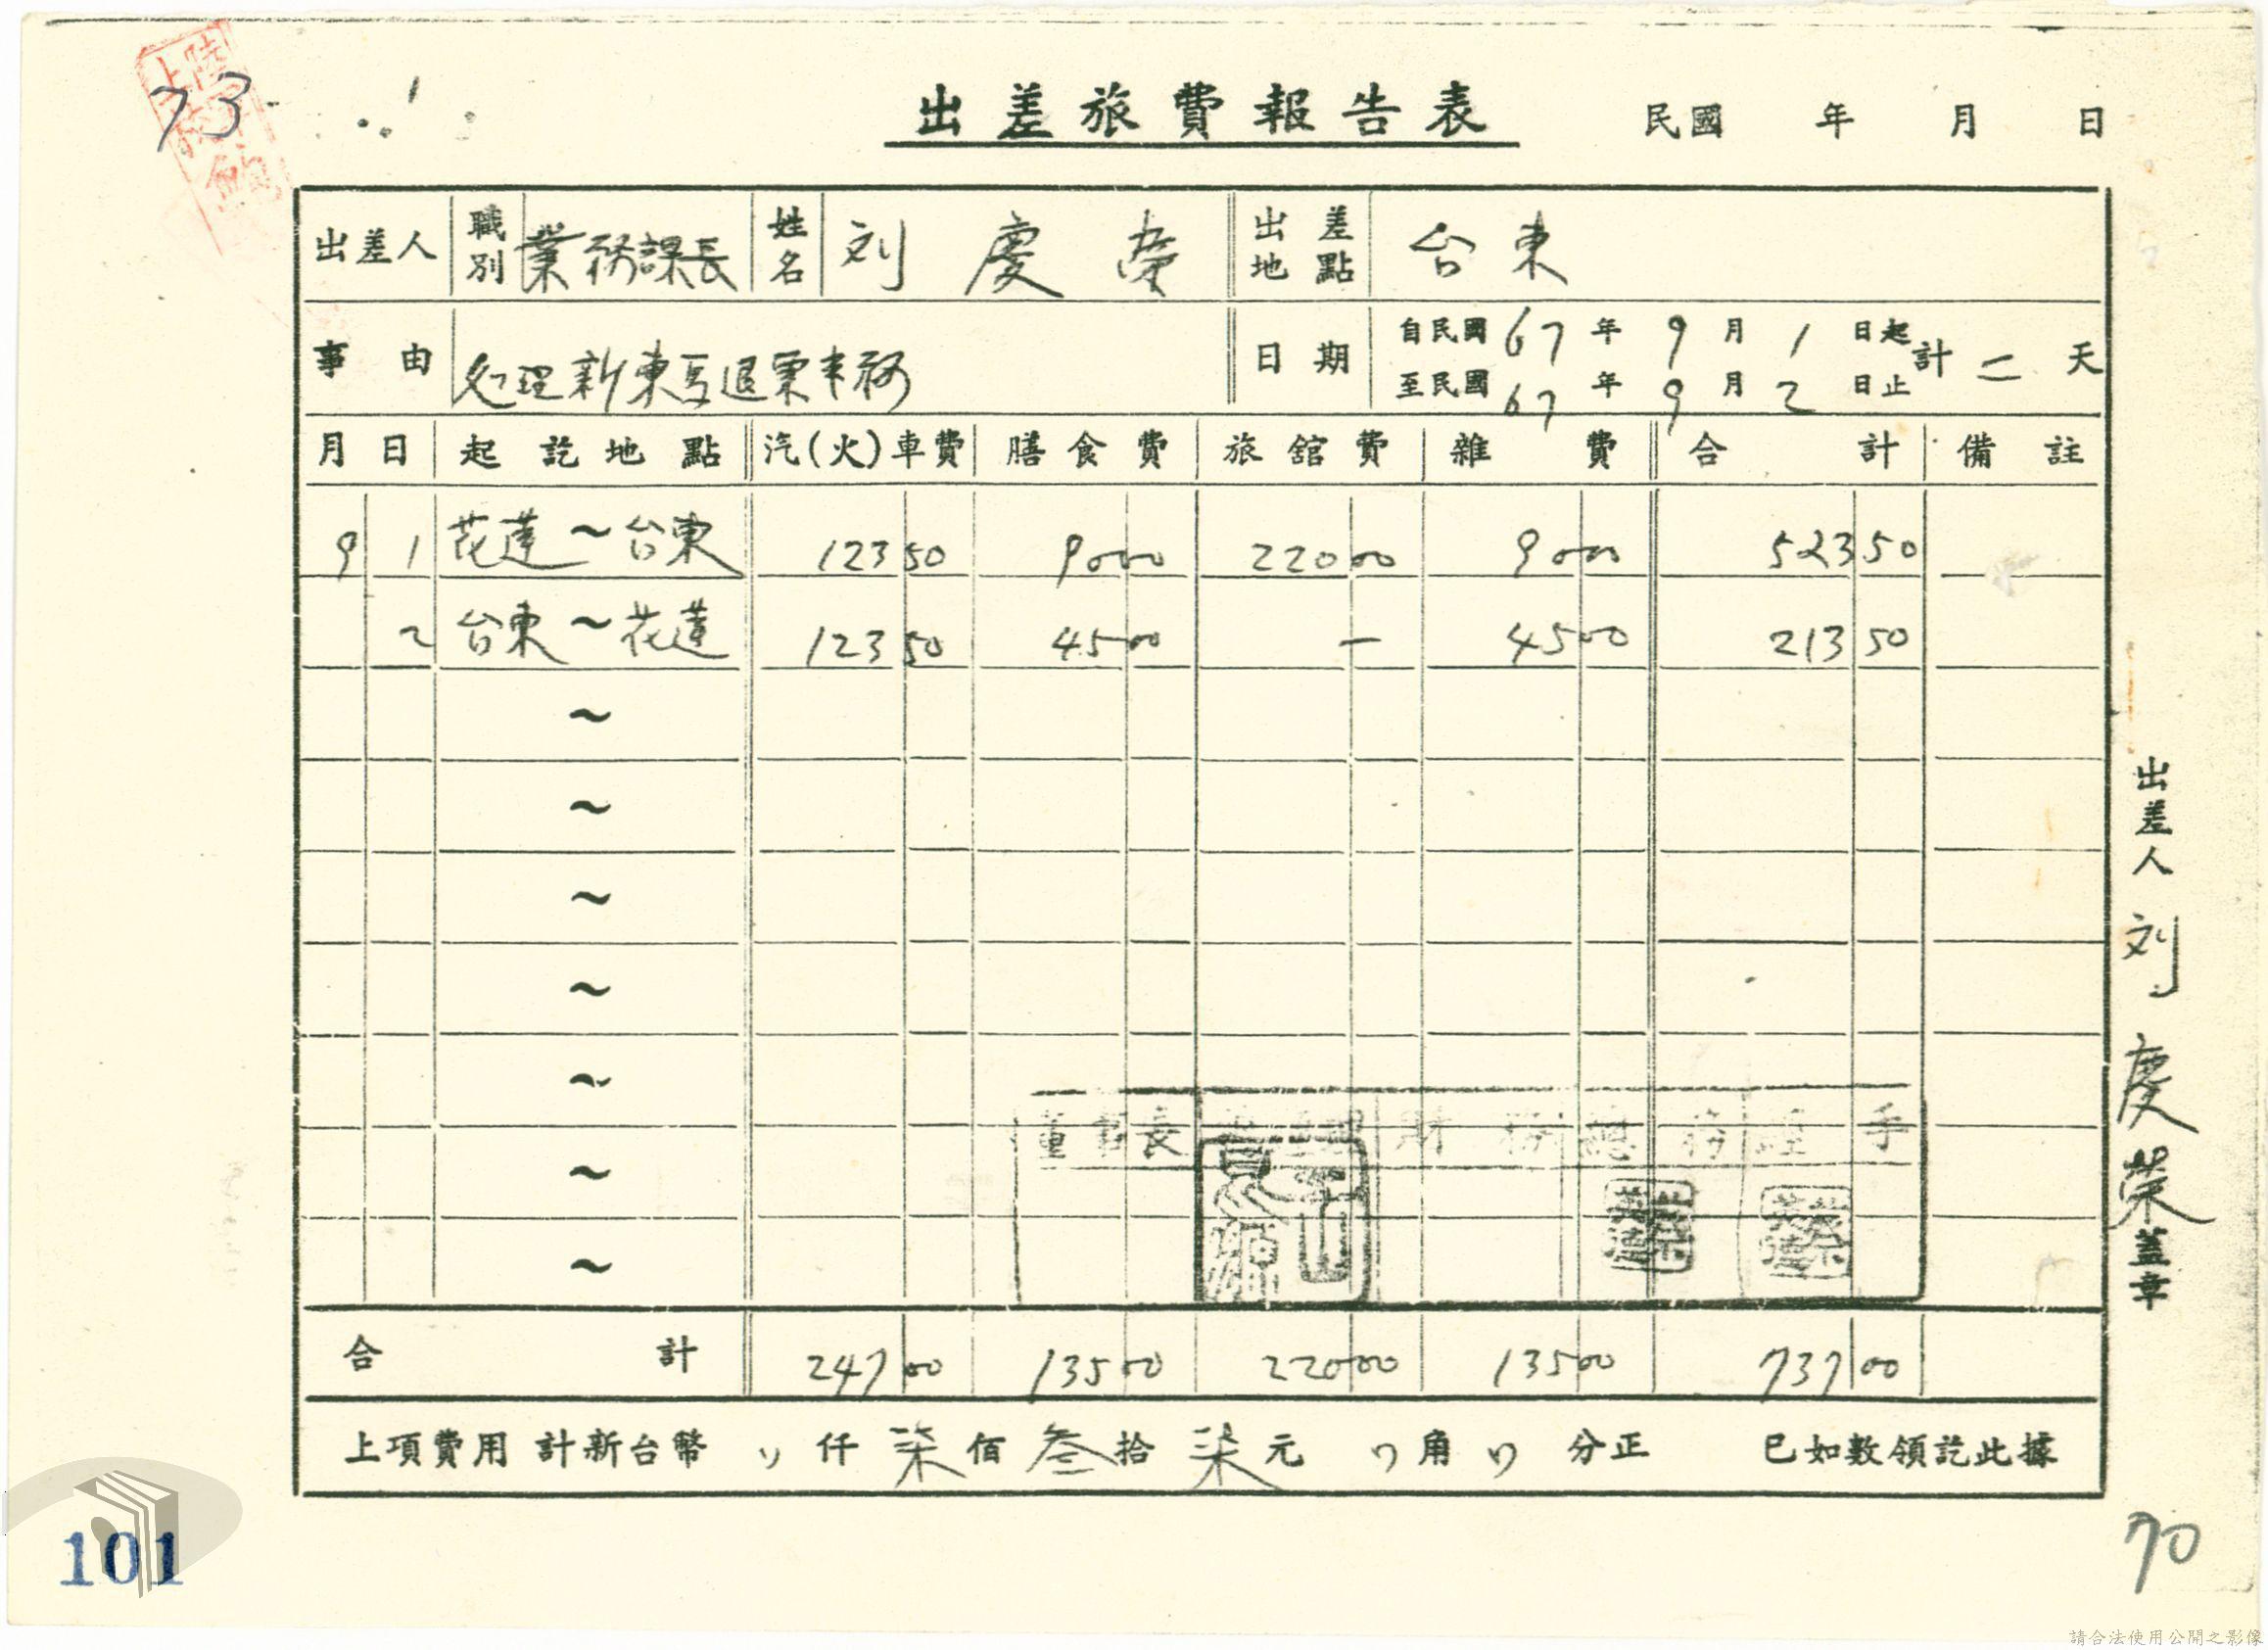 73
出差旅費報告表 民國 年 月 日
出差人 職別 業務課長 姓名 刘慶荣 出差地點 台東
事由 処理新東亐退票事務 日期 自民國67年9月1日起 至民國67年9月2日止 計二天
月 日 起訖地點 汽(火)車費 膳食費 旅舘費 雜費 合計 備註
9 1 花蓮~台東 123 50 90 00 220 00 90 00 523 50
2 台東~花蓮 123 50 45 00 — 45 00 213 50
~
~
~
~
~
~
~
董事長 財務 總務 經手
合計 247 00 135 00 220 00 135 00 737 00
上項費用計新台幣 〃仟柒佰叁拾柒元〃角〃分正 已如數領訖此據
出差人 刘慶榮 蓋章
70
101
請合法使用公開之影像